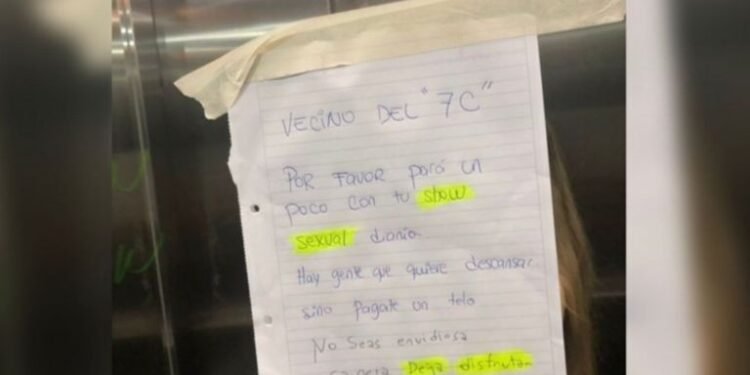 VECINO DEL "7C"
POR FAVOR pará un
poco con tu show
sexual diario.
Hay gente que quiere descansar
sino pagate un telo
No seas envidiosa
Deja disfrutar